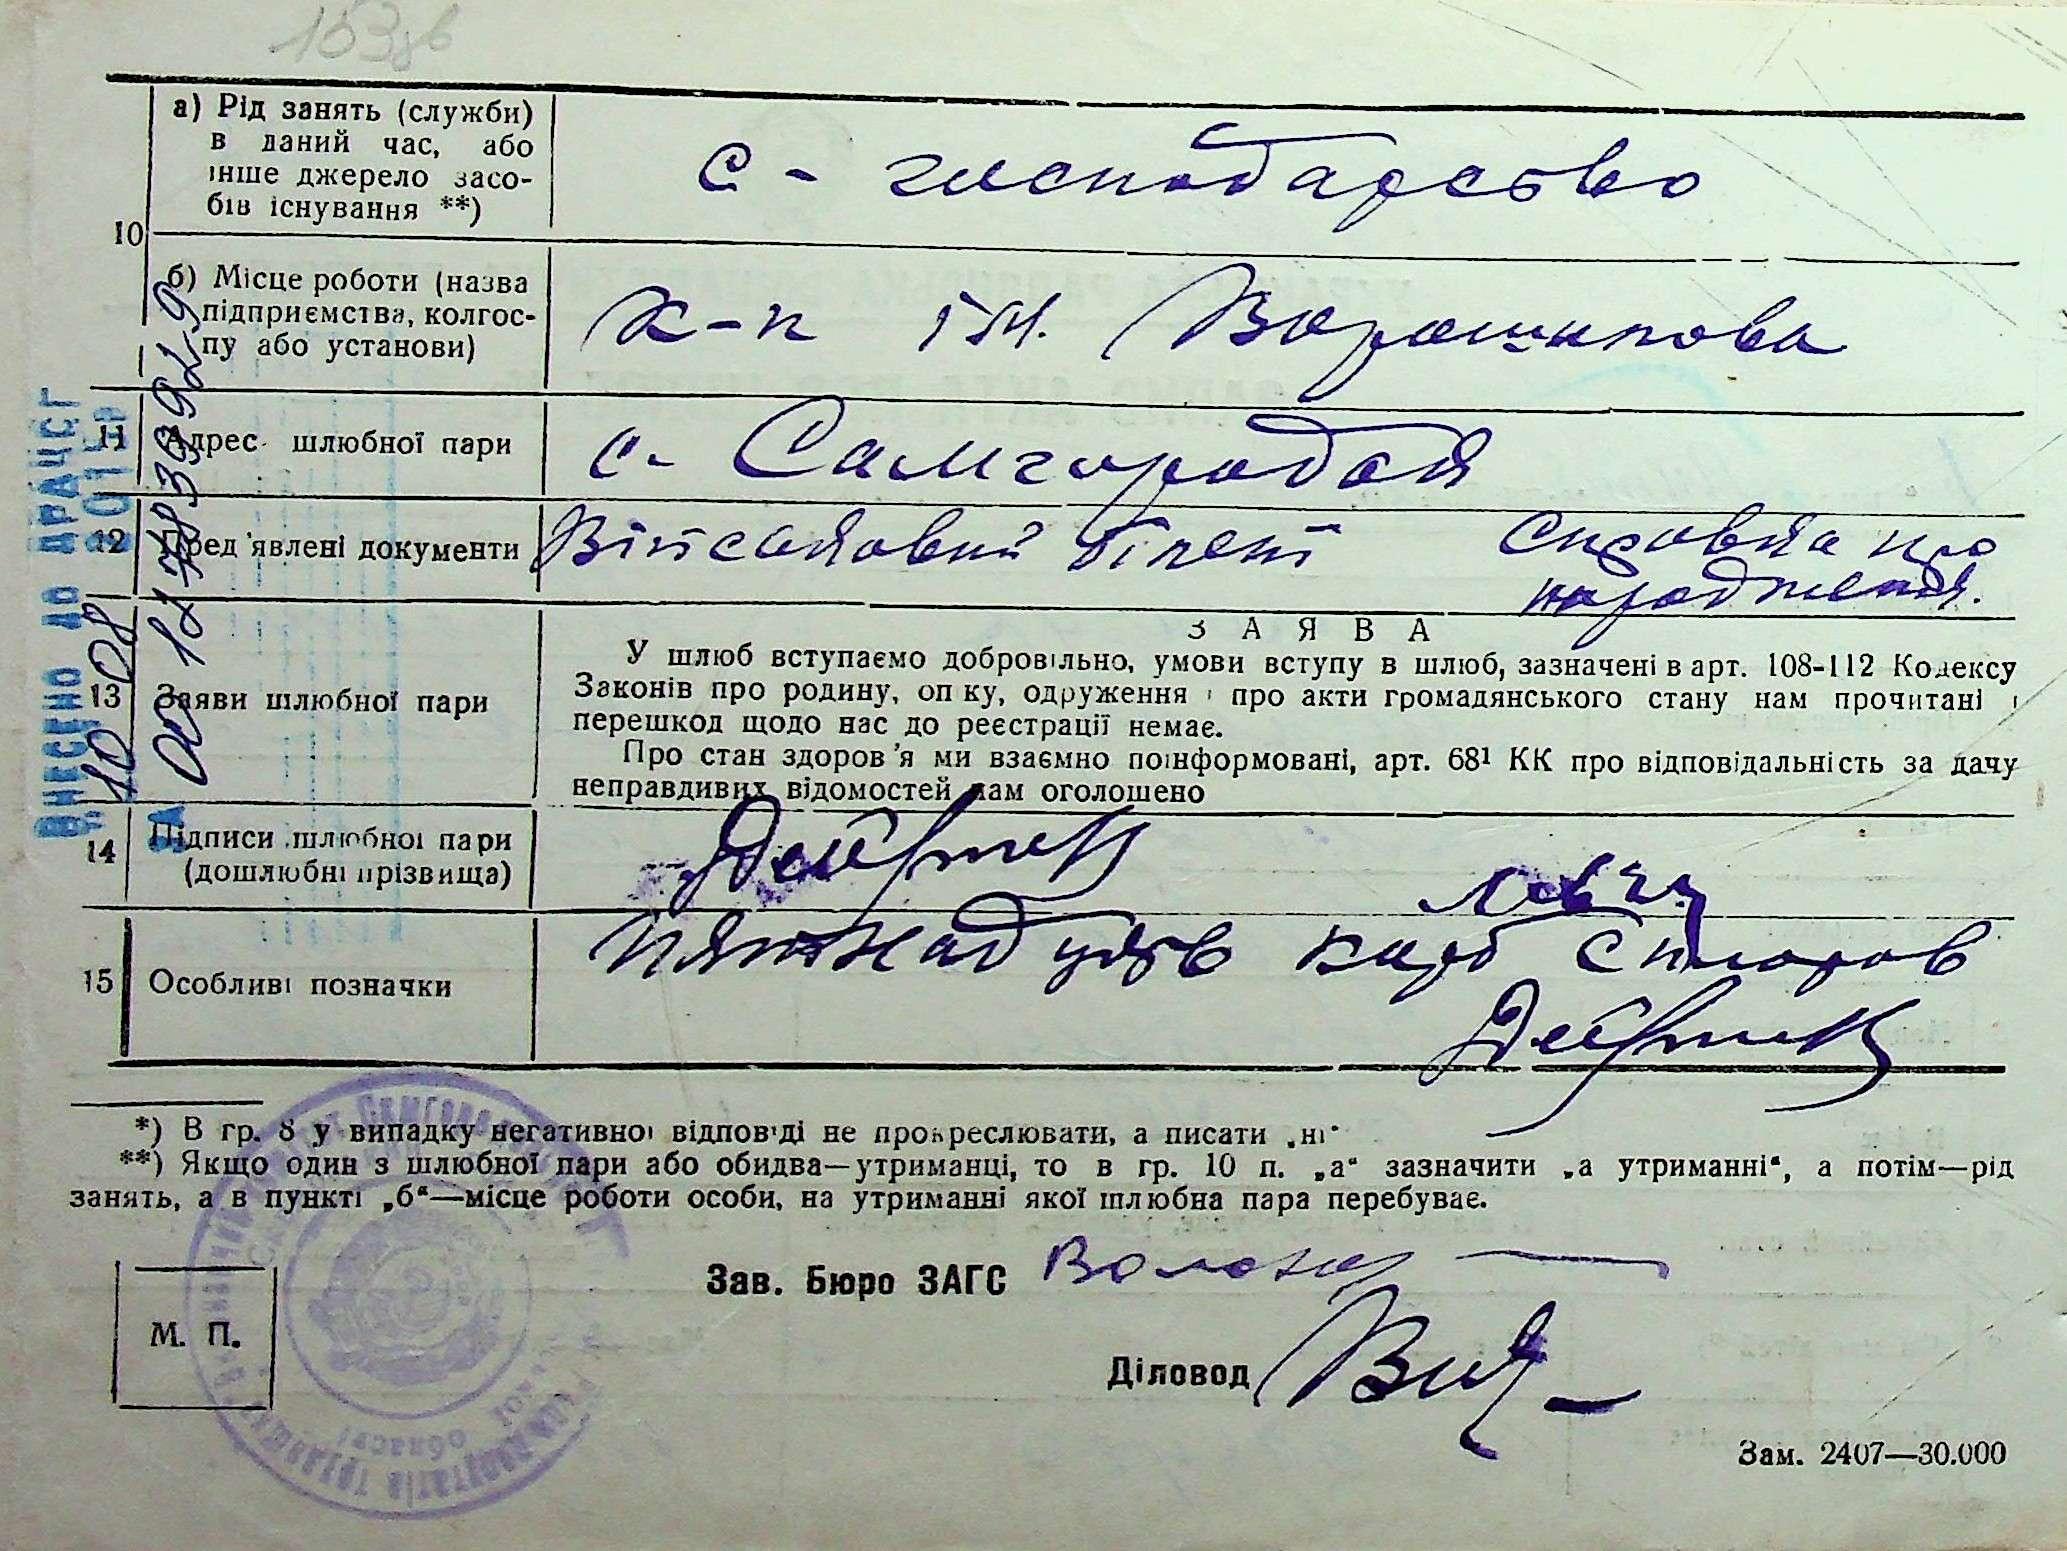 153зв
а) Рід занять (служби)
в даний час, або
інше джерело засо-
бів існування **)
с - господарство
10
б) Місце роботи (назва
підприємства, колгос-
пу або установи)
К-п ім. Ворошилова
11 Адрес шлюбної пари
с. Самгородок
12 Пред'явлені документи
Військовий білет Справка про
народження.
З А Я В А
13 Заяви шлюбної пари
У шлюб вступаємо добровільно, умови вступу в шлюб, зазначені в арт. 108-112 Кодексу
Законів про родину, опіку, одруження і про акти громадянського стану нам прочитані і
перешкод щодо нас до реєстрації немає.
Про стан здоров'я ми взаємно поінформовані, арт. 68¹ КК про відповідальність за дачу
неправдивих відомостей нам оголошено
14 Підписи шлюбної пари
(дошлюбні прізвища)
15 Особливі позначки
пятнадцять карб
*) В гр. 8 у випадку негативної відповіді не прокреслювати, а писати „ні"
**) Якщо один з шлюбної пари або обидва—утриманці, то в гр. 10 п. „а" зазначити „а утриманні", а потім—рід
занять, а в пункті „б"—місце роботи особи, на утриманні якої шлюбна пара перебуває.
Зав. Бюро ЗАГС
М. П.
Діловод
Зам. 2407—30.000
ВНЕСЕНО ДО ДРАЦСГ
області